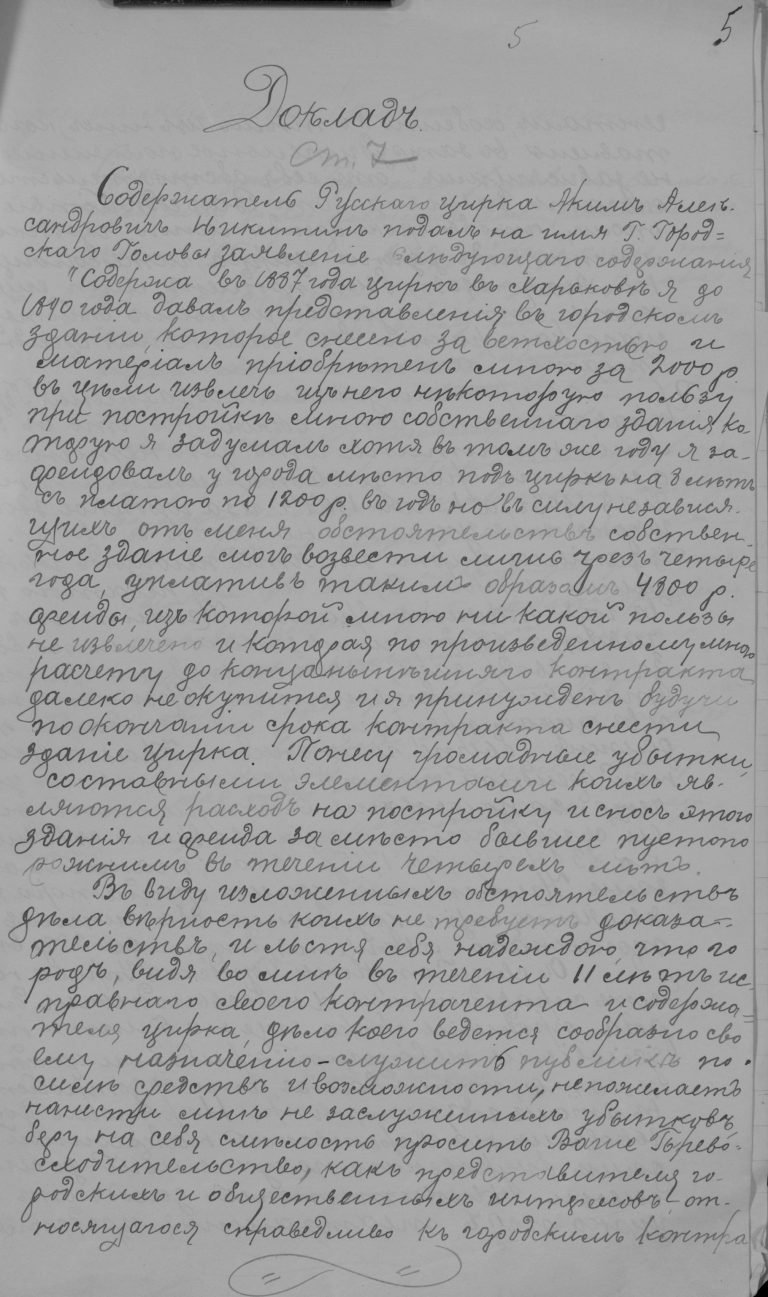 5 5
Докладъ.
Ст. 7
Содержатель Русскаго цирка Акимъ Алек-
сандровичъ Никитинъ подалъ на имя Г. Город=
скаго Головы заявленіе слѣдующаго содержанія
"Содержа въ 1887 года циркъ въ Харьковѣ я до
1890 года давалъ представленія въ городскомъ
зданіи, которое снесено за ветхостью и
матеріалъ пріобрѣтенъ мною за 2000 р
въ цѣли извлечь изъ него нѣкоторую пользу
при постройкѣ мною собственнаго зданія ко-
торую я задумалъ хотя въ томъ же году я за-
арендовалъ у города мѣсто подъ циркъ на 8 лѣтъ
съ платою по 1200 р. въ годъ но въ силу независя-
щихъ отъ меня обстоятельствъ собствен-
ное зданіе могъ возвести лишь чрезъ четыре
года, уплативъ такимъ образомъ 4800 р.
аренды, изъ которой мною ни какой пользы
не извлечено и которая по произведенному мною
расчету до конца нынѣшняго контракта
далеко не окупится и я принужденъ будучи
по окончаніи срока контракта снести
зданіе цирка. Понесу громадные убытки,
составными элементами коихъ яв-
ляются расходъ на постройку и сносъ этого
зданія и аренда за мѣсто бывшее пустопо
рожнимъ въ теченіи четырехъ лѣтъ.
Въ виду изложенныхъ обстоятельствъ
дѣла вѣрность коихъ не требуетъ доказа-
тельствъ, и льстя себя надеждою, что го
родъ, видя во мнѣ въ теченіи 11 лѣтъ ис
правнаго своего контрагента и содержа=
теля цирка, дѣло коего ведется сообразно сво
ему назначенію - служить публикѣ по
силѣ средствъ и возможности, не пожелаетъ
нанести мнѣ не заслуженныхъ убытковъ
беру на себя смѣлость просить Ваше Прево-
сходительство, какъ представителя го-
родскихъ и общественныхъ интересовъ от-
носящагося справедливо къ городскимъ контра